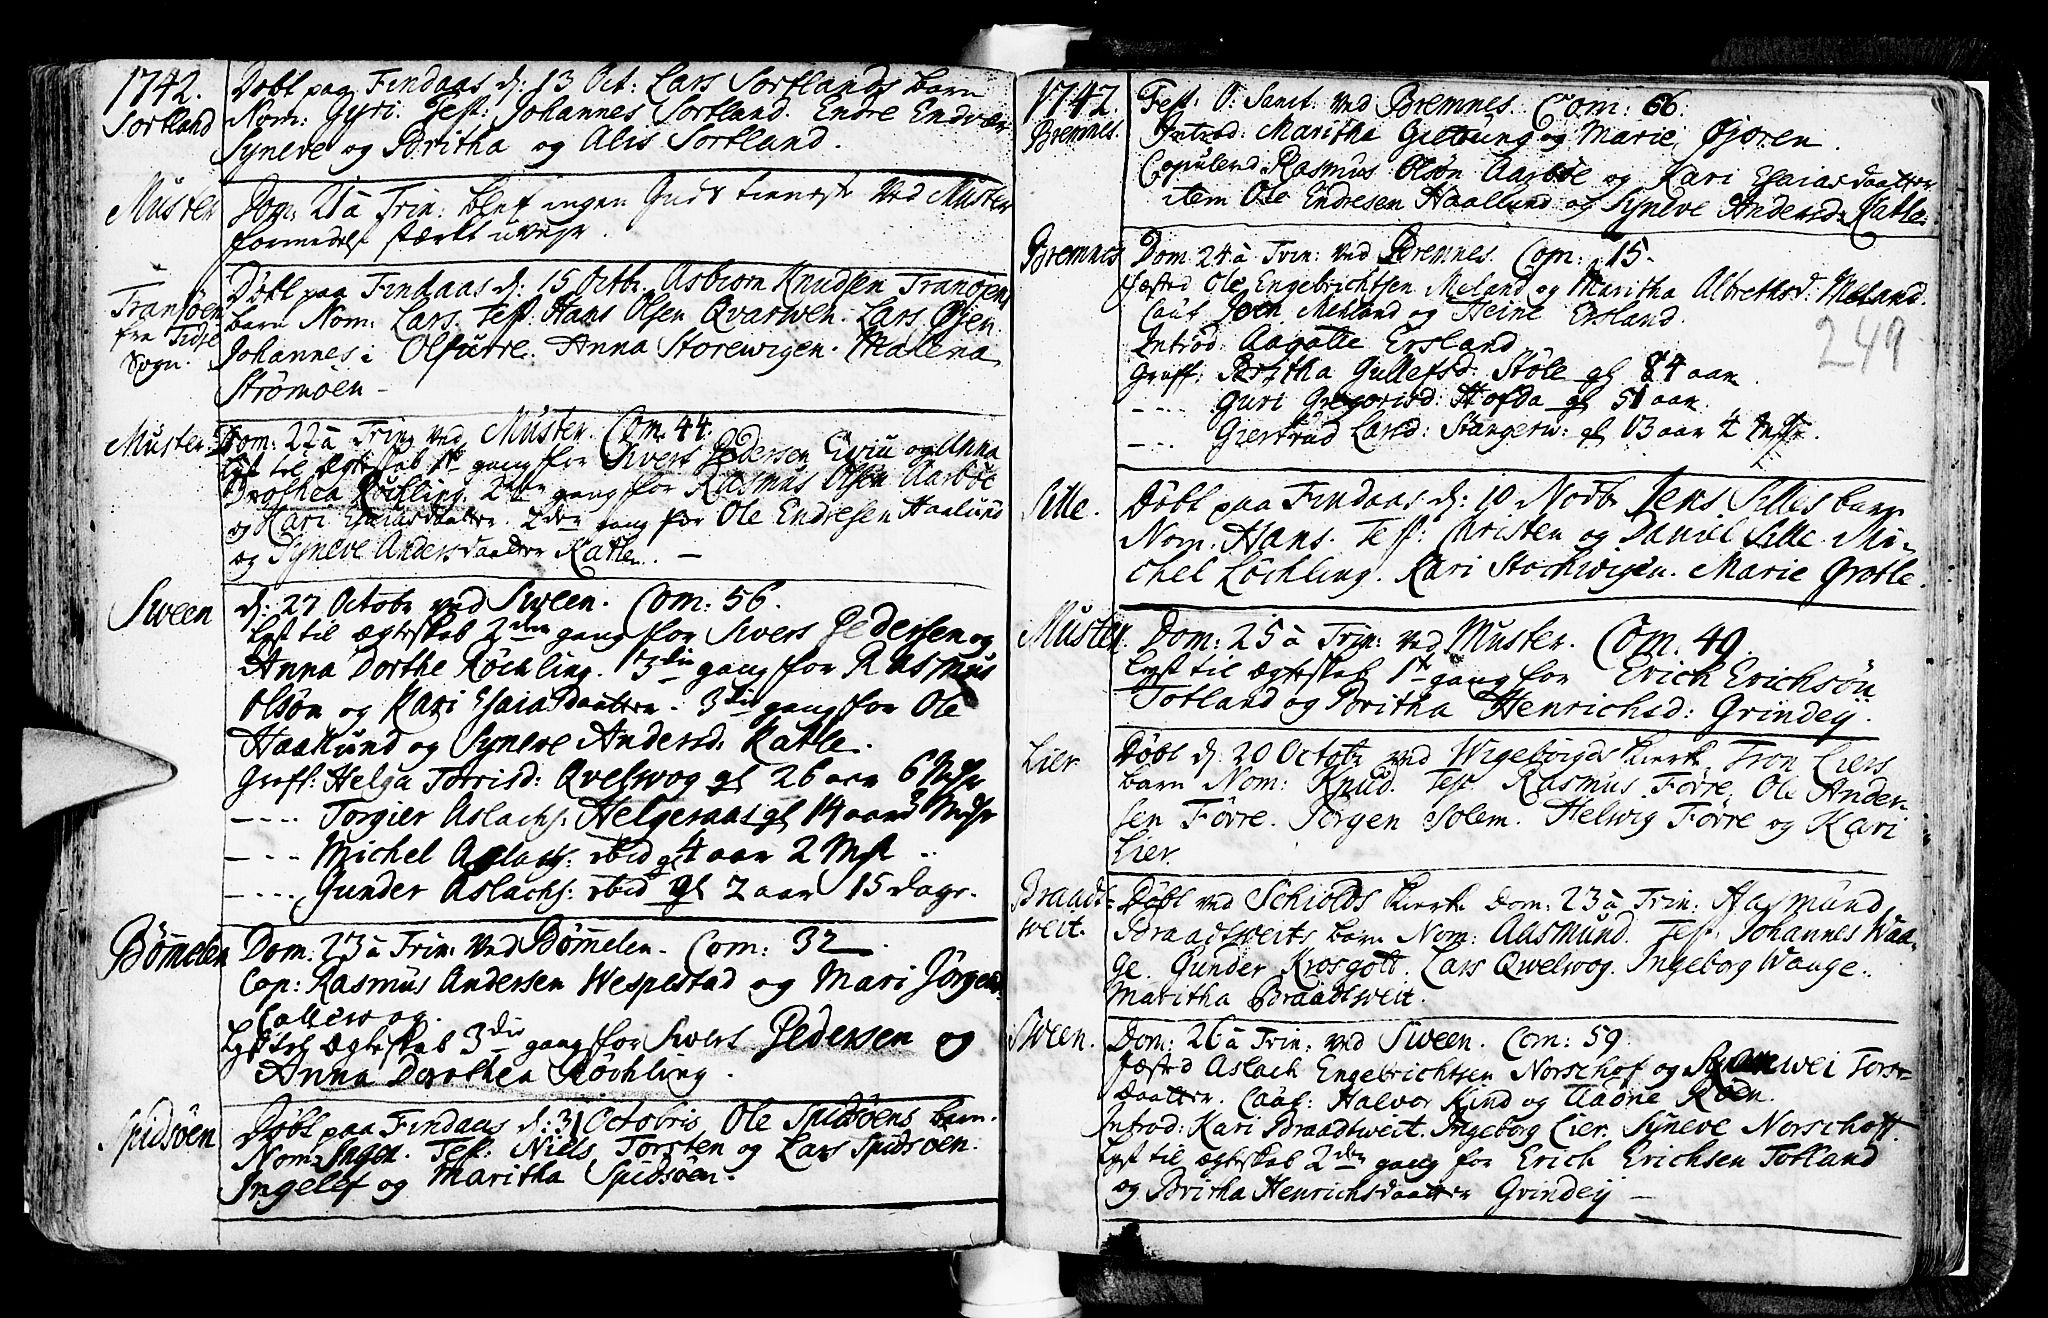 1742.
Sortland
Døbt paa Findaas d: 13 Oct: Lars Sortlands barn
Nom: Gyri. Test: Johannes Sortland. Endre
Syneve og Britha og Alis Sortland.
Muster
Dom: 21 a Trin: blef ingen Guds tieneste ved Muster
formedelst stærkt uveyr.
Tranøen
fra Tidse
Sogn.
Døbt paa Findaas d: 15 Octbr Asbiorn Knudsen Tranøens
barn Nom: Lars. Test: Hans Olsen Qvarwen. Lars Øien
Johannes i Anna Storewigen. Malena
Strømøen -
Muster
Dom: 22 a Trin: ved Muster. Com: 44.
Lyst til Ægteskab 1te gang for Siver Pedersen og Anna
Dorothea Røchling. 2den gang for Rasmus Olsen Aarbøe
og Kari Esaiasdaatter. 2den gang for Ole Endresen Haalund
og Syneve Andersdaatter Katle. -
Sween
d: 27 Octobr ved Sween. Com: 56.
Lyst til Ægteskab 2den gang for Sivers Pedersen og
Anna Dorthe Røchling. 3die gang for Rasmus
Olsøn og Kari Esaiasdaatter. 3die gang for Ole
Haallund og Syneve Andersd: Katle.
Graff: Helga Torrisd: Qvelwog gl 26 aar 6 Mdr
---- Torgier Aslachs: Helgeraas gl 14 aar Mdr
---- Michel Aslachs: ibid gl 4 aar 2 Mdr
---- Gunder Aslachs: ibid gl 2 aar 15 dage.
Bømelen
Dom: 23 a Trin: ved Bømelen. Com: 32
Cop: Rasmus Andersen Wespestad og Mari Jørgens:
Lyst til Ægteskab 3die gang for Sivert Pedersen og
Anna Dorothea Røchling.
Spidsøen
Døbt paa Findaas d: 31 Octobris Ole Spidsøens barn.
Nom: Inger. Test: Niels, Torsten og Lars Spidsøen.
Ingelef og Maritha Spidsøen.
1742.
Bremnes
Fest: O: Sanct: ved Bremnes. Com: 66.
Introd: Maritha og Marie Gjøren.
Copulerid Rasmus Olsøn Aarbøe og Kari Esaiasdaatter
item Ole Endresen Haallund og Syneve Andersd: Katle.
Bremnes
Dom 24 a Trin: ved Bremnes. Com: 15.
fæsted Ole Engebrichtsen Meland og Maritha Albrethsd: Meland.
Caut Joen Mehland og Heine Ersland.
Introd: Aagatte Ersland.
Graff: Britha Gullefsd: Støle gl 84 aar.
---- Guri Gregorisd: Hofda gl 51 aar
---- Giertrud Larsd: gl 13 aar 4 Mdr.
249
Sille.
Døbt paa Findaas d: 10 Novbr Jens Silles barn
Nom: Hans. Test: Christen og Daniel Sille. Mi-
chel Løchling. Kari Stochwigen. Marie Grotle.
Muster
Dom: 25 a Trin: ved Muster. Com. 49.
Lyst til Ægteskab 1te gang for Erich Erichsøn
Totland og Britha Henrichsd: Grindeij.
Lier
Døbt d: 20 Octobr ved Kierk Tron Liers
barn Nom: Knud. Test Rasmus Førre, Ole Ander-
sen Førre. Jørgen Solem. Helwig Førre og Kari
Lier.
Braadt=
weit.
Døbt ved Schiolds Kierk Dom: 23 a Trin: Aasmund
Braadtweits barn Nom: Aasmund. Test: Johannes Waa-
ge. Gunder Krosgott. Lars Qwelwog. Ingeborg Waage.
Maritha Braadtweit.
Sween.
Dom: 26 a Trin: ved Sween. Com: 59.
fæsted Aslach Engebrichtsen Norschof og Torse-
daatter. Caut: Halvor Rind og Aadne Røen.
Introd: Kari Braadtweit. Ingeborg Lier. Syneve Norschoff.
Lyst til Ægteskab 2den gang for Erich Erichsen Totland
og Britha Henrichsdaatter Grindeij -